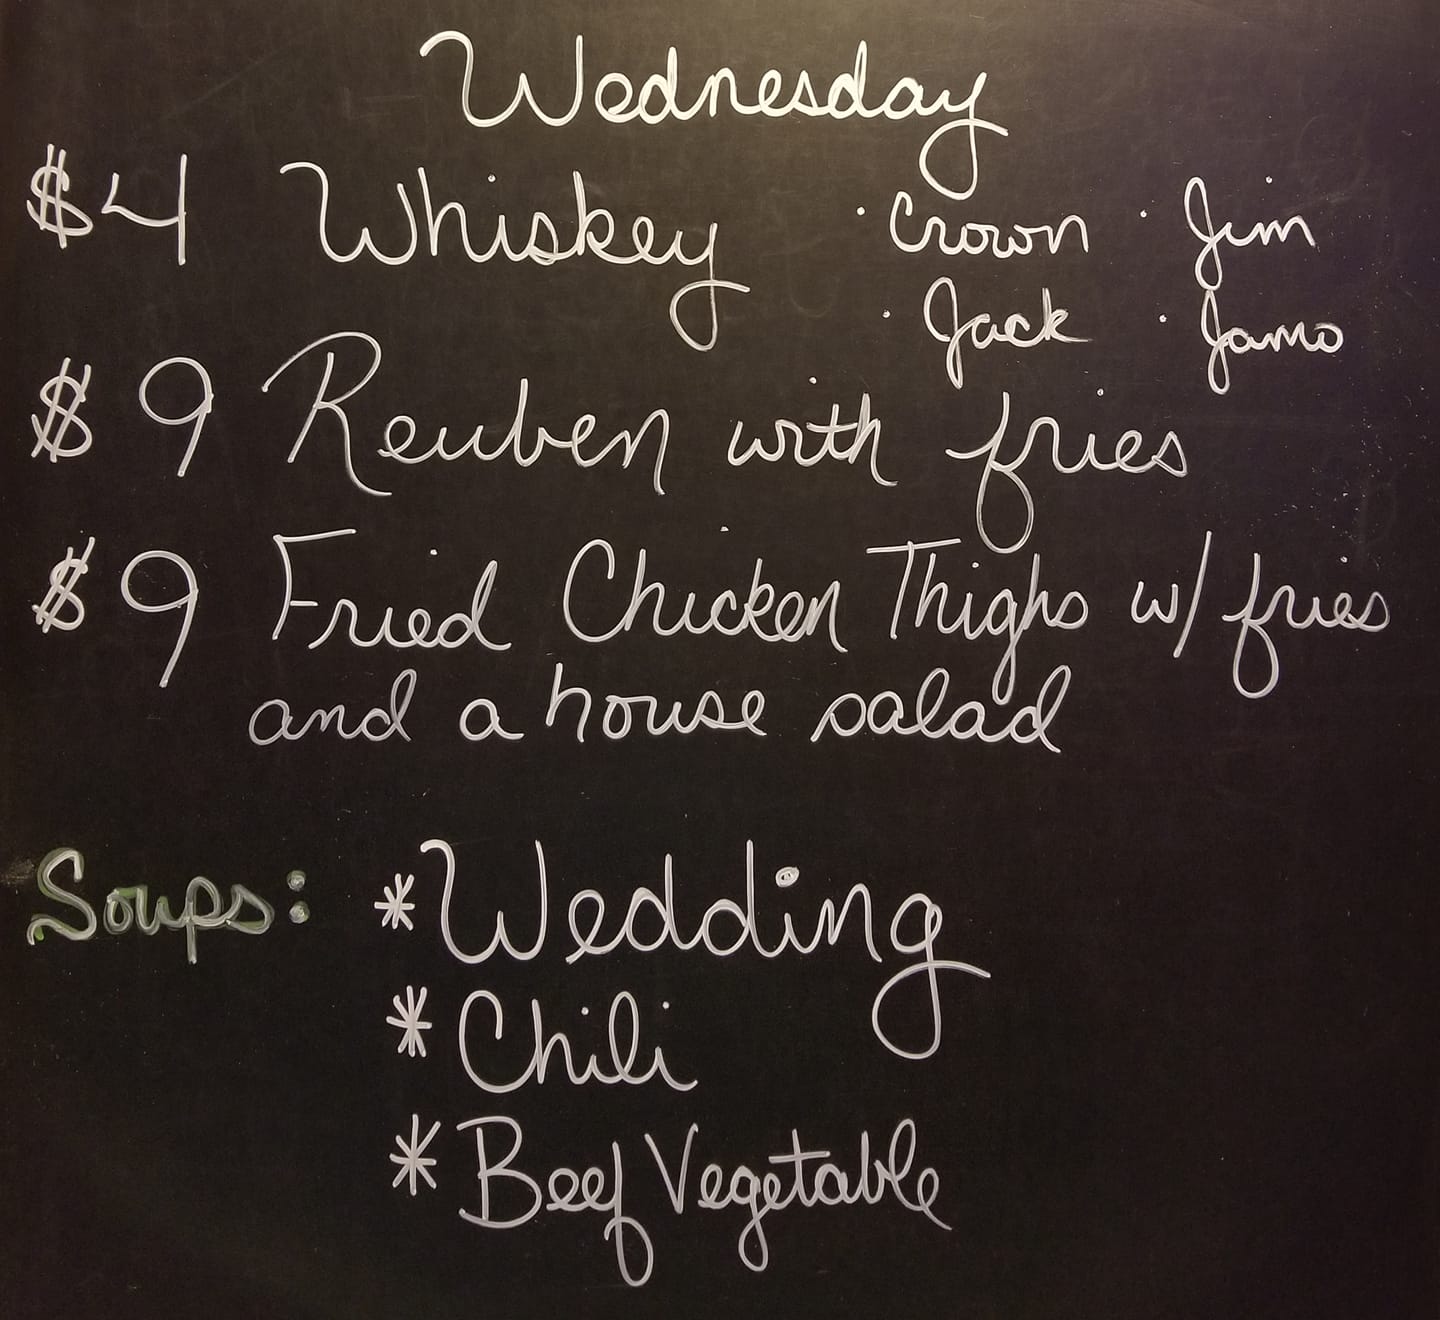 Wednesday
$4 Whiskey · Crown · Jim
· Jack · Jamo
$9 Reuben with fries
$9 Fried Chicken Thighs w/ fries
and a house salad
Soups: * Wedding
* Chili
* Beef Vegetable